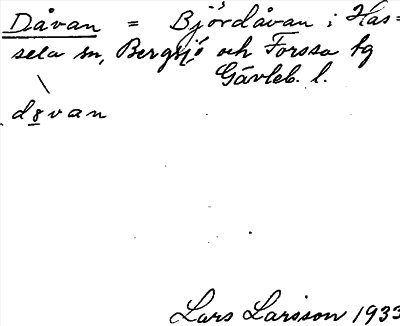 Dåvan = Björdåvan i Has=
sela sn, Bergsjö och Forssa tg
Gävleb. l.
d8van
Lars Larsson 1933